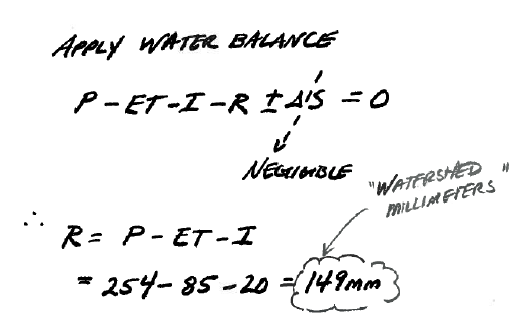 APPLY WATER BALANCE
P - ET - I - R ± ΔS = 0
NEGLIGIBLE
"WATERSHED
MILLIMETERS"
∴ R = P - ET - I
= 254 - 85 - 20 = 149mm